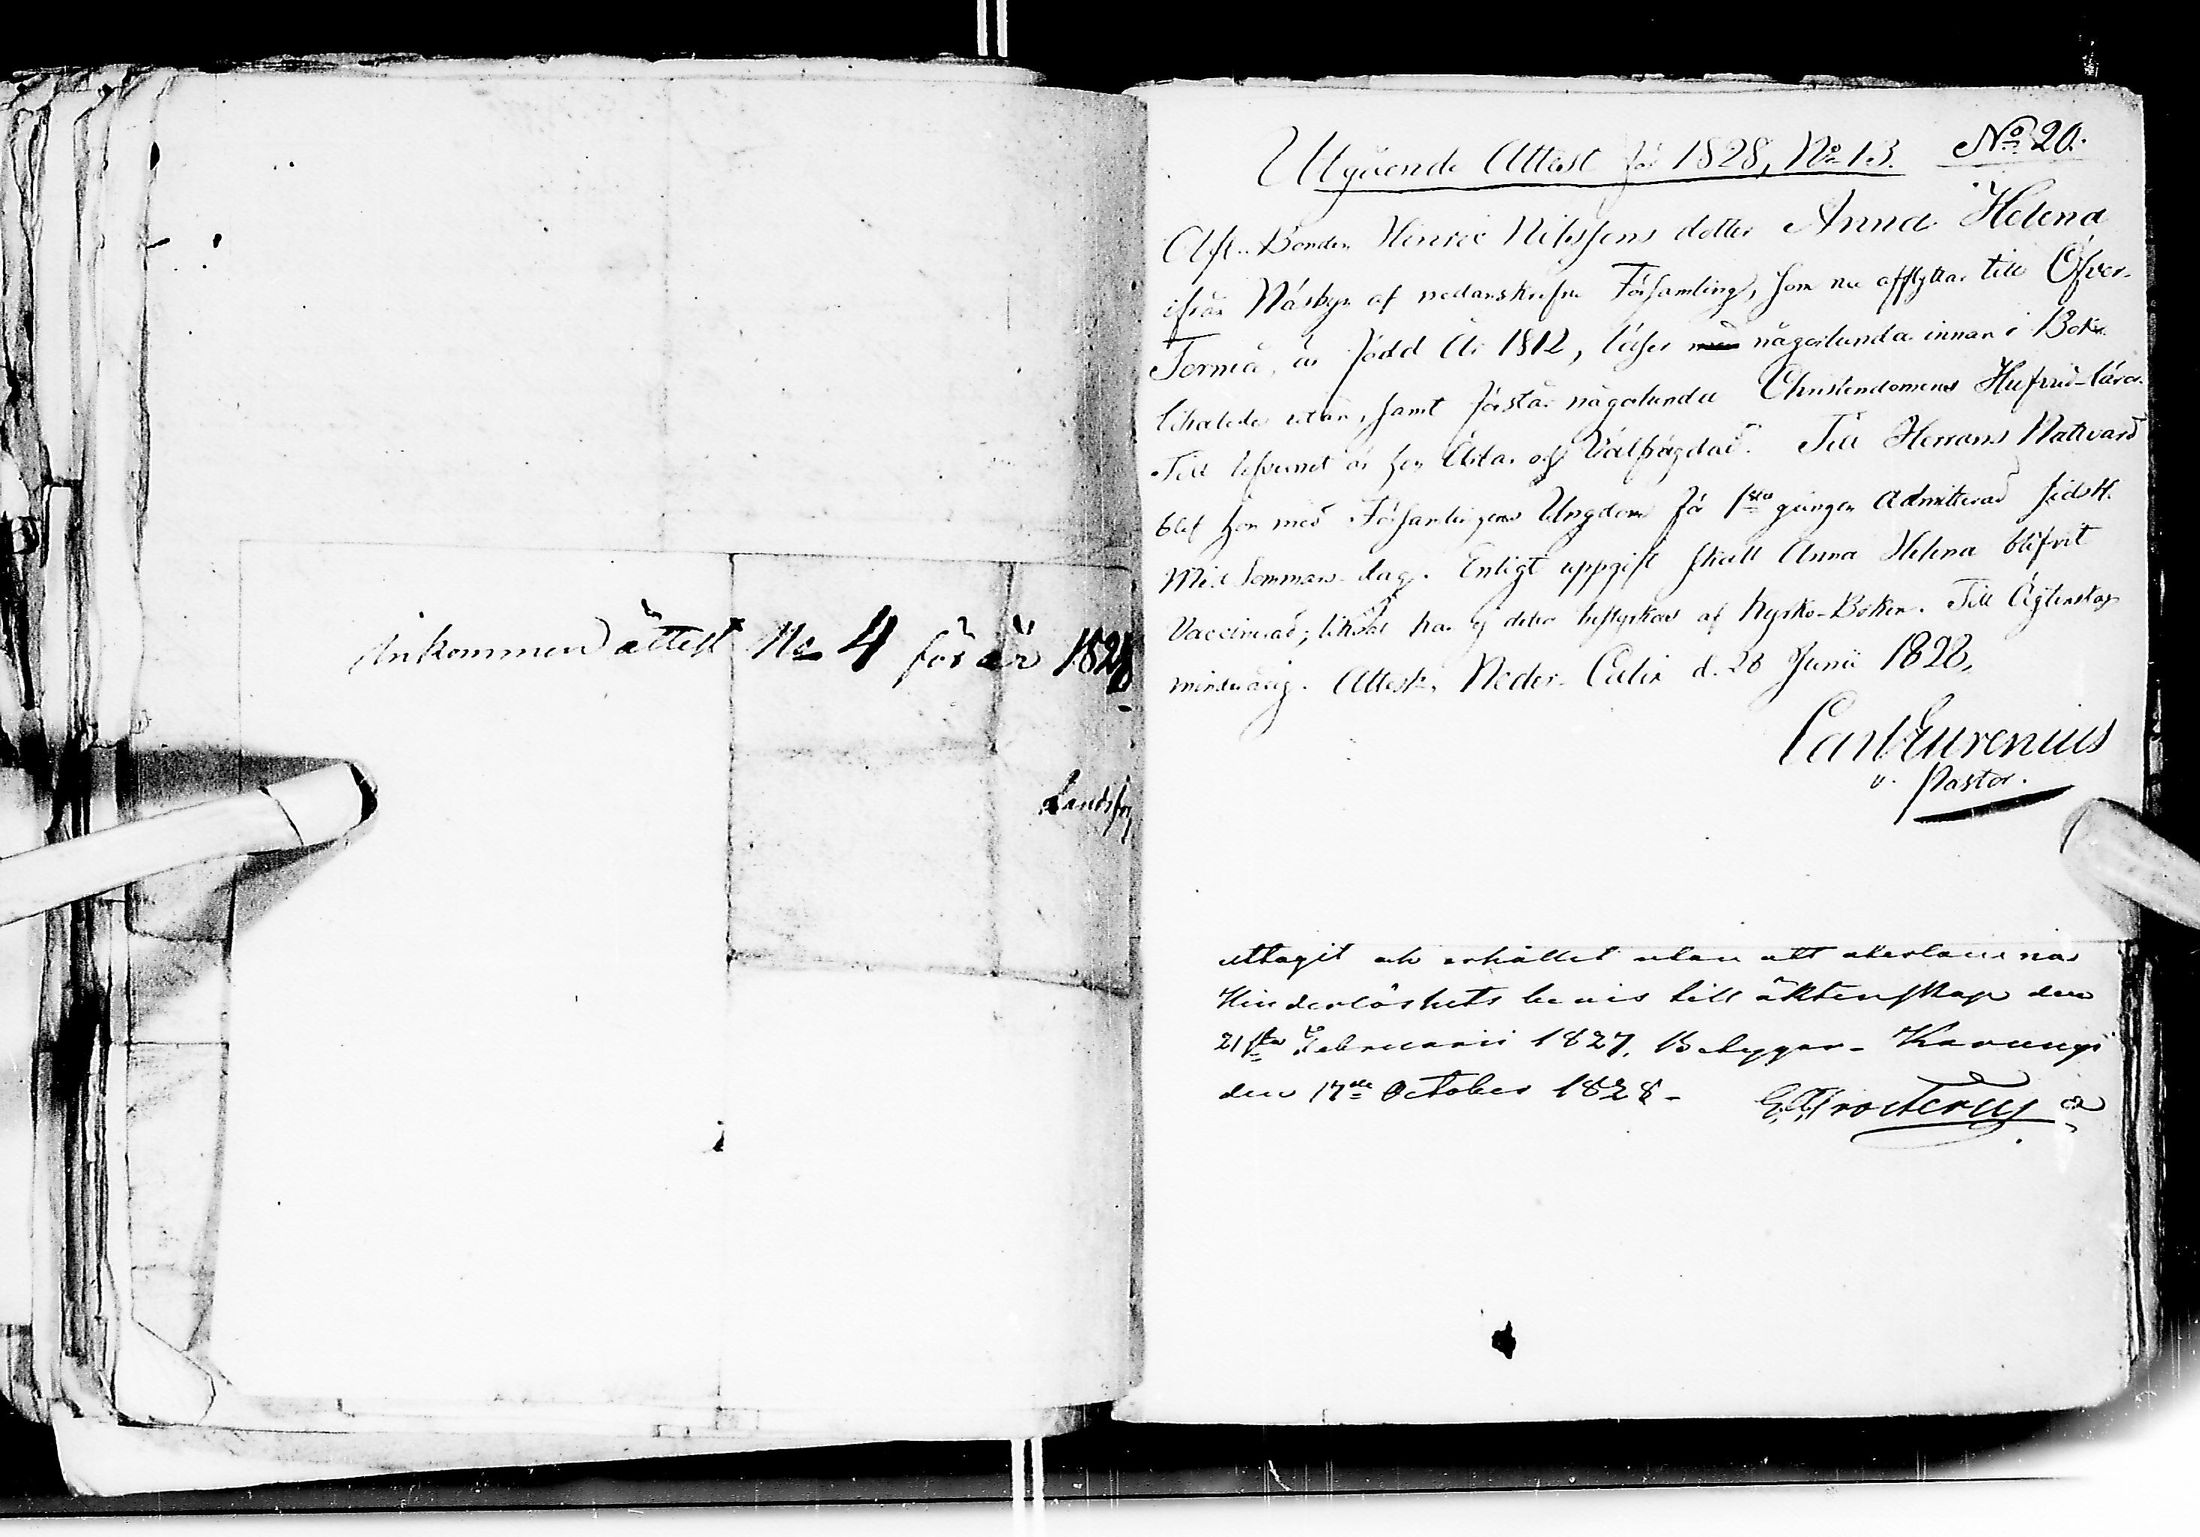 Inkommen attest No 4 för år 1828
Landsfg
Utgående Attest för 1828, No 13. No 20.
Afl. Bonden Henric Nilssons dotter Anna Helena
ifrån Näsbyn af nedanskrefne Församling, som nu afflyttar till Öfver-
Torneå, är född År 1812, läser någorlunda innan i Bok
likaledes utan, samt förstår någorlunda Christendomens Hufvud-läror.
Till lefvernet är hon Ärlar och Välfrägdad. Till Herrans Nattvard
blef hon med Församlingens Ungdom för 1sta gången admitterad sidstl.
Mid Sommars-dag. Enligt uppgift skall Anna Helena blifvit
Vaccinerad; likväl kan ej detta bestyrkas af Kyrko-Boken. Till Ägtenskap
minderårig. Attest. Neder-Calix d. 28 Junii 1828.
Carl Eurenius
v. Pastor.
uttagit och erhållet utan att återlemnas
Hinderlöshets bevis till äktenskap den
21sta Februarii 1827. Betygar - Karungi
den 17de October 1828 -